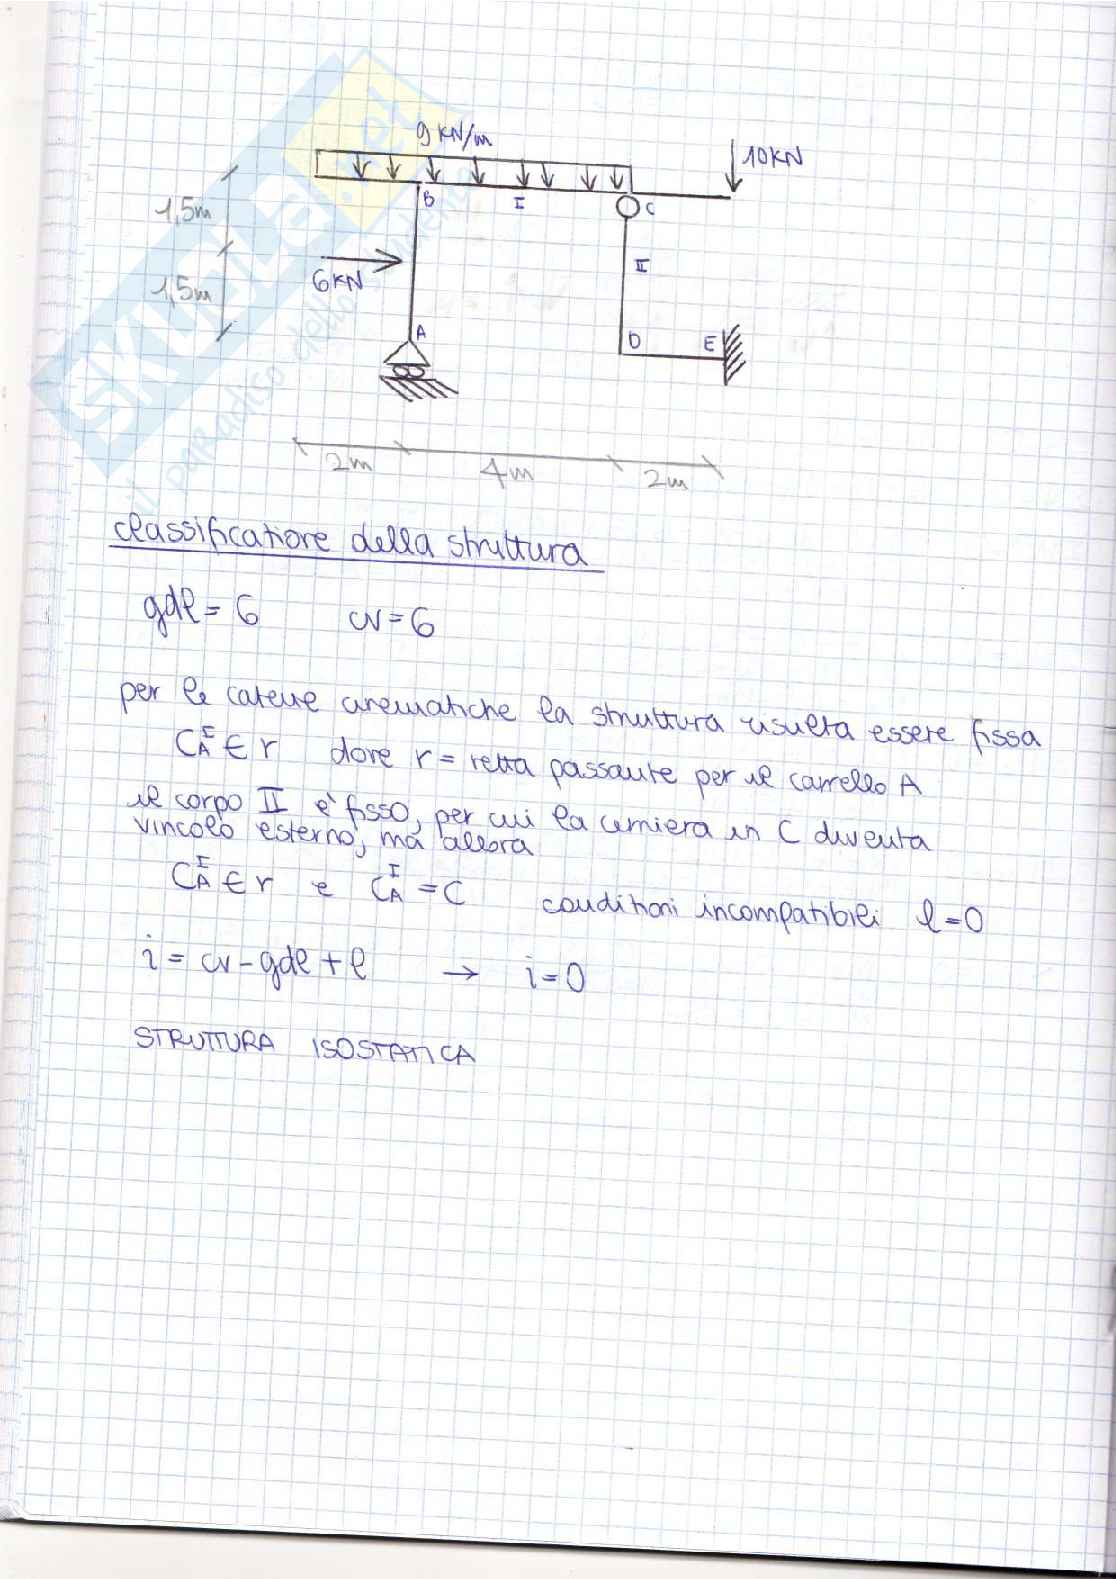 9 KN/m
10KN
1,5m
B
I
C
6KN
II
1,5m
A
D
E
2m
4m
2m
SKUOLA.net
il paradiso dello studente
classificazione della struttura
gdl = 6 cv = 6
per le catene cinematiche la struttura risulta essere fissa
C_A^I ∈ r dove r = retta passante per il carrello A
il corpo II è fisso, per cui la cerniera in C diventa
vincolo esterno, ma allora
C_A^I ∈ r e C_A^I = C condizioni incompatibili l=0
i = cv - gdl + l → i=0
STRUTTURA ISOSTATICA